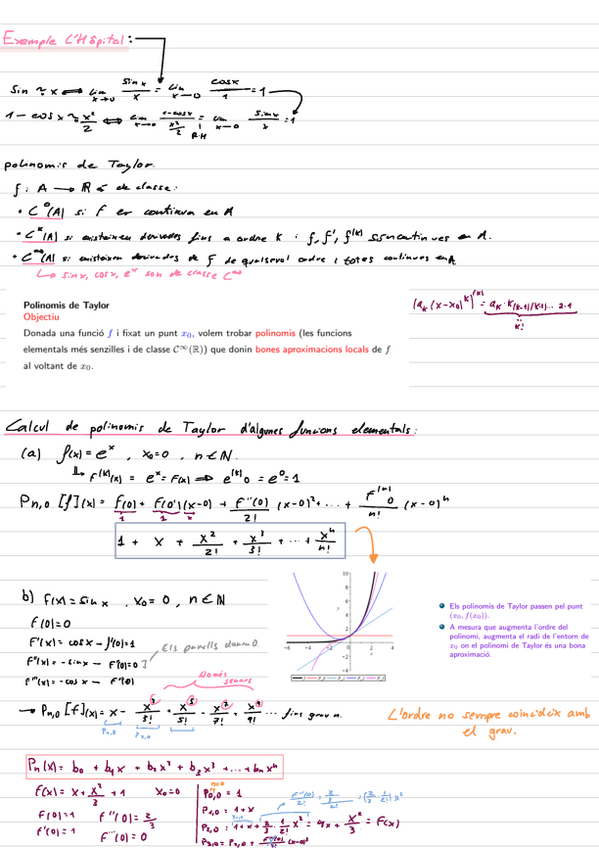 Exemple L'Hôpital:
sin ~ x ⟺ lim x→0 sinx/x = lim x→0 cosx/1 = 1
1 - cosx ~ x²/2 ⟺ lim x→0 (1-cosx)/(x²/2) = lim x→0 sinx/x = 1
R.H
polinomis de Taylor.
f: A → R és de classe:
• C⁰(A) si f és contínua en A
• Cᵏ(A) si existeixen derivades fins a ordre k i f, f', f⁽ᵏ⁾ són contínues en A.
• C^∞(A) si existeixen derivades de f de qualsevol ordre i totes contínues en A
↳ sinx, cosx, eˣ són de classe C^∞
Polinomis de Taylor
Objectiu
Donada una funció f i fixat un punt x₀, volem trobar polinomis (les funcions
elementals més senzilles i de classe C^∞(ℝ)) que donin bones aproximacions locals de f
al voltant de x₀.
(aₖ(x-x₀)ᵏ)⁽ᵏ⁾ = aₖ·k(k-1)(k-2)... 2·1
k!
Calcul de polinomis de Taylor d'algunes funcions elementals:
(a) f(x) = eˣ, x₀=0, n∈N.
↳ f⁽ᵏ⁾(x) = eˣ = f(x) ⟹ e⁽ᵏ⁾0 = e⁰ = 1
Pn,0 [f](x) = f(0) + f(0')(x-0) + f''(0)/2! (x-0)² + ... + f⁽ⁿ⁾0/n! (x-0)ⁿ
1 1 x
1 + x + x²/2! + x³/3! + ... + xⁿ/n!
b) f(x) = sinx, x₀=0, n∈N
f(0)=0
f'(x) = cosx → f'(0)=1
f''(x) = -sinx → f''(0)=0
f'''(x) = -cosx → f'''(0)
Els parells donen 0.
Només senars
→ Pn,0 [f](x) = x - x³/3! + x⁵/5! - x⁷/7! + x⁹/9! ... fins grau n.
Els polinomis de Taylor passen pel punt
(x₀, f(x₀)).
A mesura que augmenta l'ordre del
polinomi, augmenta el radi de l'entorn de
x₀ on el polinomi de Taylor és una bona
aproximació.
L'ordre no sempre coincideix amb
el grau.
Pn(x) = b₀ + b₁x + b₂x² + b₃x³ + ... + bₙxⁿ
f(x) = x + x²/3 + 1 x₀=0
f(0)=1 f''(0) = 2/3
f'(0)=1 f'''(0)=0
P0,0 = 1
P1,0 = 1+x
P2,0 = 1+x+2/3·1/2! x² = 1+x+x²/3 = f(x)
P3,0 = P2,0 + f'''(0)/3! (x-0)³